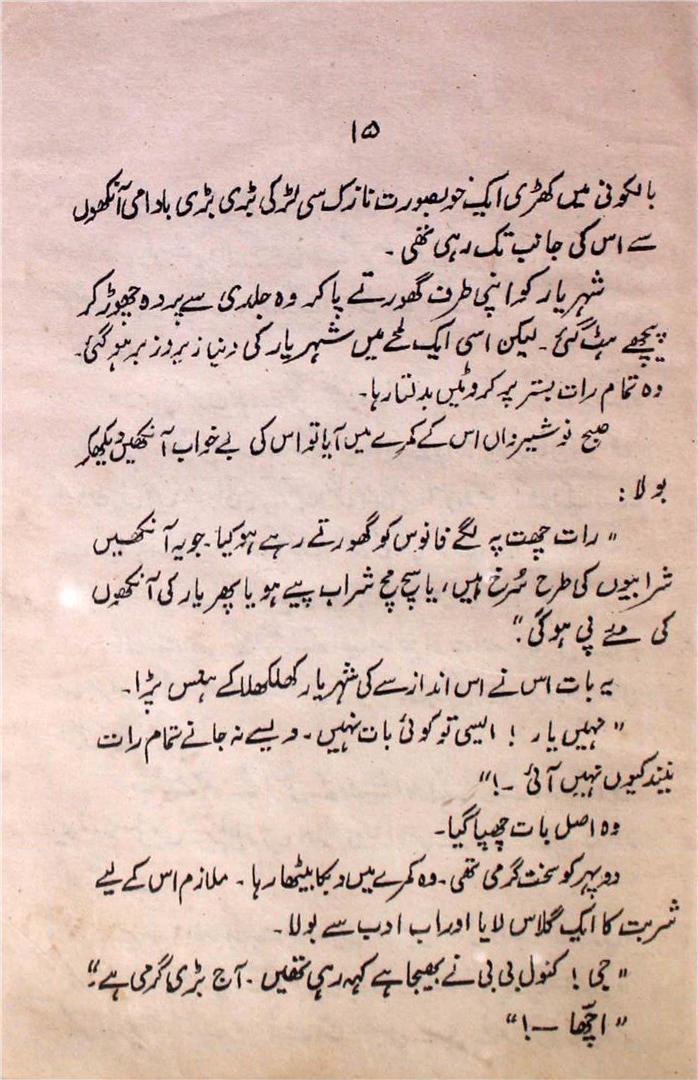 ۱۵
بالکونی میں کھڑی ایک خوبصورت نازک سی لڑکی بڑی بڑی بادامی آنکھوں
سے اس کی جانب تک رہی تھی ۔
شہریار کو اپنی طرف گھورتے پا کر وہ جلدی سے پردہ چھوڑ کر
پیچھے ہٹ گئی ۔ لیکن اسی ایک لمحے میں شہریار کی دنیا زیر و زبر ہو گئی ۔
وہ تمام رات بستر پر کروٹیں بدلتا رہا۔
صبح نوشیرواں اس کے کمرے میں آیا تو اس کی بے خواب آنکھیں دیکھ کر
بولا :
" رات چھت پہ لگے فانوس کو گھورتے رہے ہو کیا ۔ جو یہ آنکھیں
شرابیوں کی طرح سُرخ ہیں ، یا سچ مچ شراب پیے ہو یا پھر یار کی آنکھوں
کی مئے پی ہو گی ۔"
یہ بات اس نے اس انداز سے کی شہریار کھلکھلا کے ہنس پڑا ۔
" نہیں یار ! ایسی تو کوئی بات نہیں ۔ ویسے نہ جانے تمام رات
نیند کیوں نہیں آئی ۔ !"
وہ اصل بات چھپا گیا۔
دوپہر کو سخت گرمی تھی ۔ وہ کمرے میں دبکا بیٹھا رہا ۔ ملازم اس کے لیے
شربت کا ایک گلاس لایا اور اب ادب سے بولا ۔
" جی ! کنول بی بی نے بھیجا ہے کہہ رہی تھیں ۔ آج بڑی گرمی ہے ۔"
" اچّھا ـــ !"